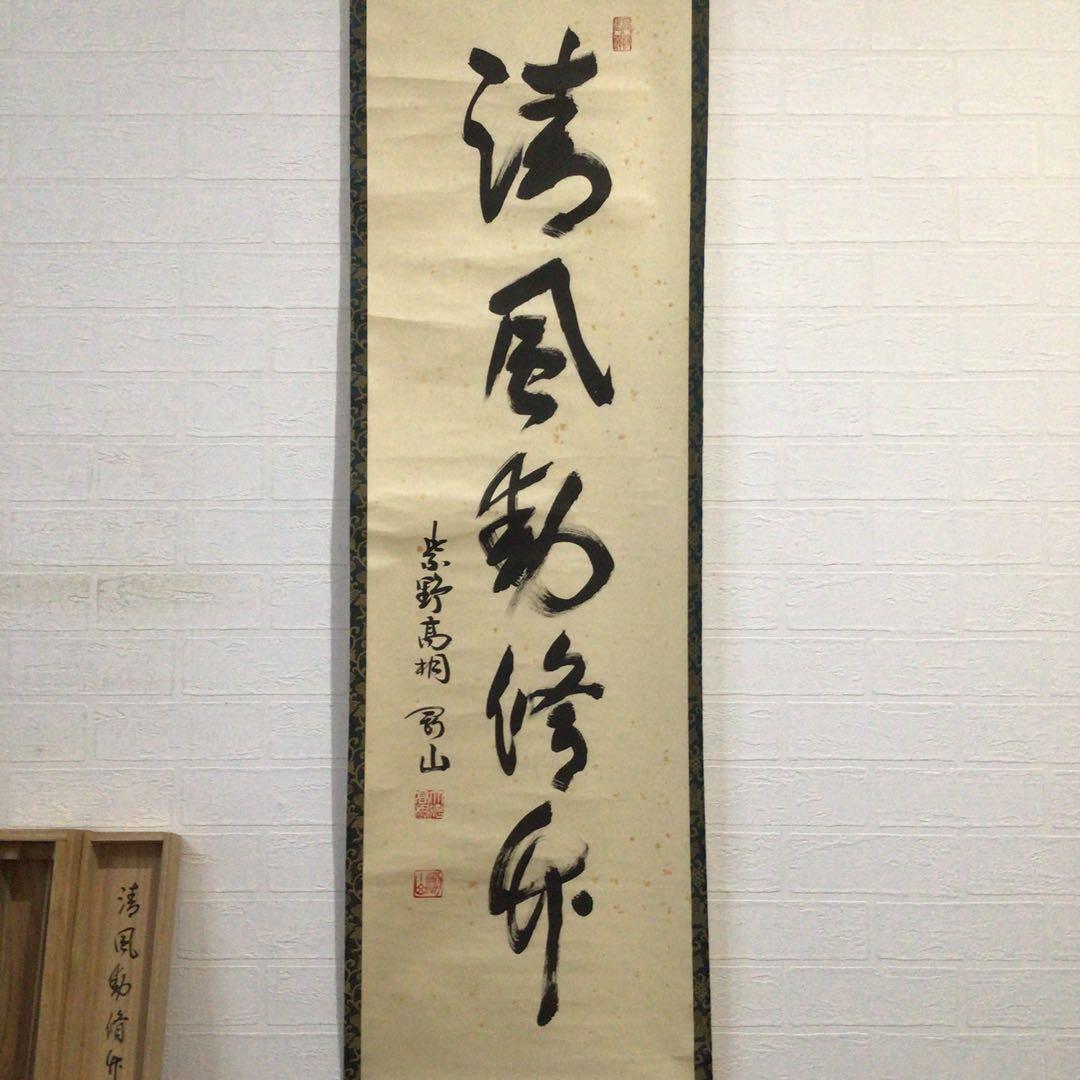 清風動脩竹
紫野高桐 寛山
清風動脩竹